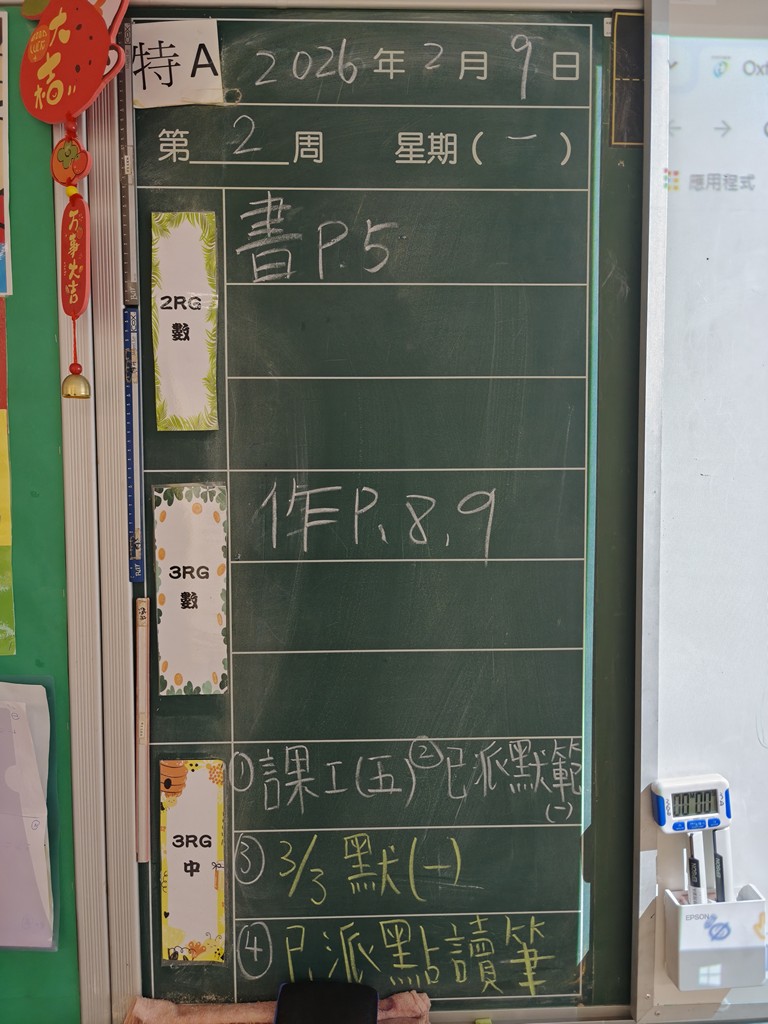 大吉
万事大吉
特A
2026年2月9日
第2周 星期(一)
2RG
數
書P.5
3RG
數
作P.8.9
3RG
中
①課工(五)②已派默範(一)
③3/3默(一)
④已派點讀筆
Oxf
應用程式
00:00
EPSON